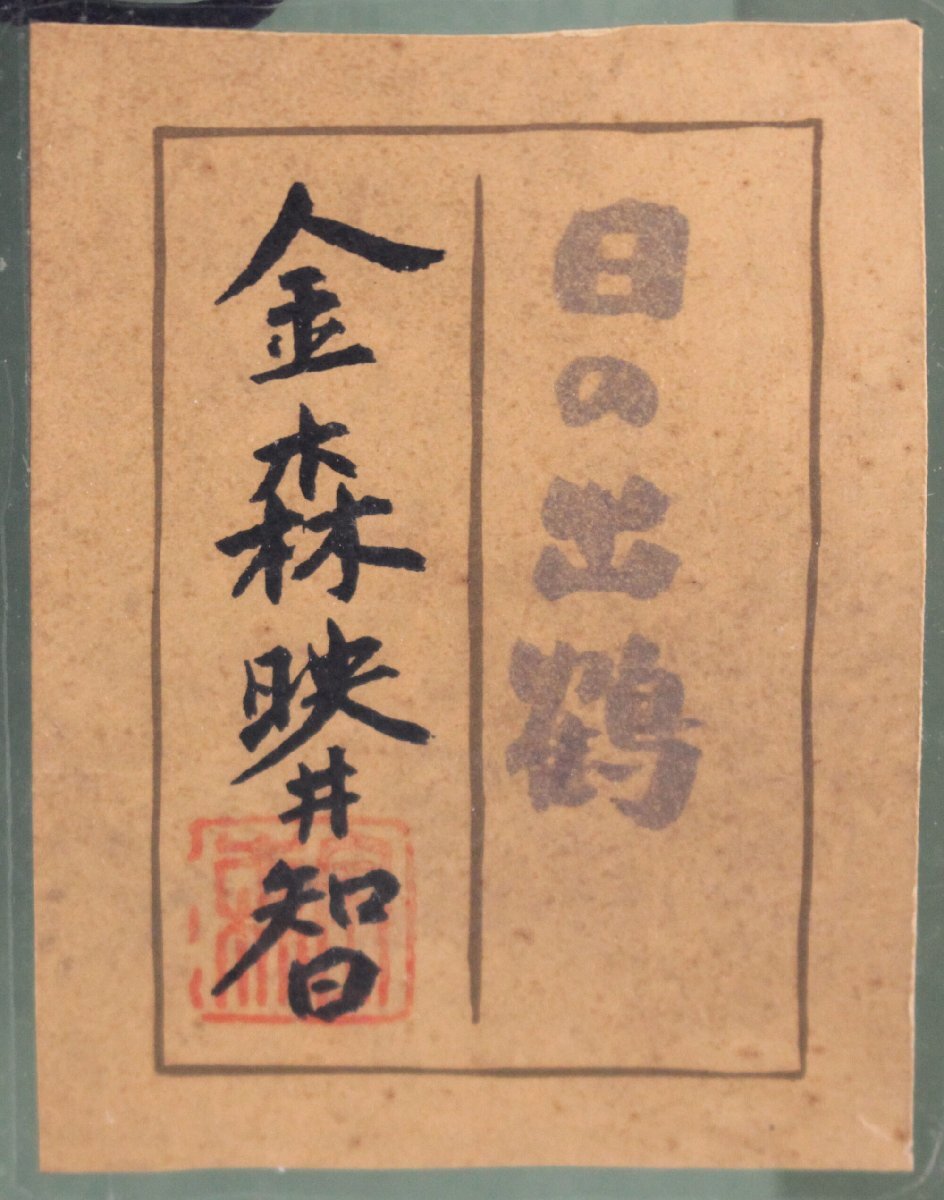 日の出鶴
金森映井智